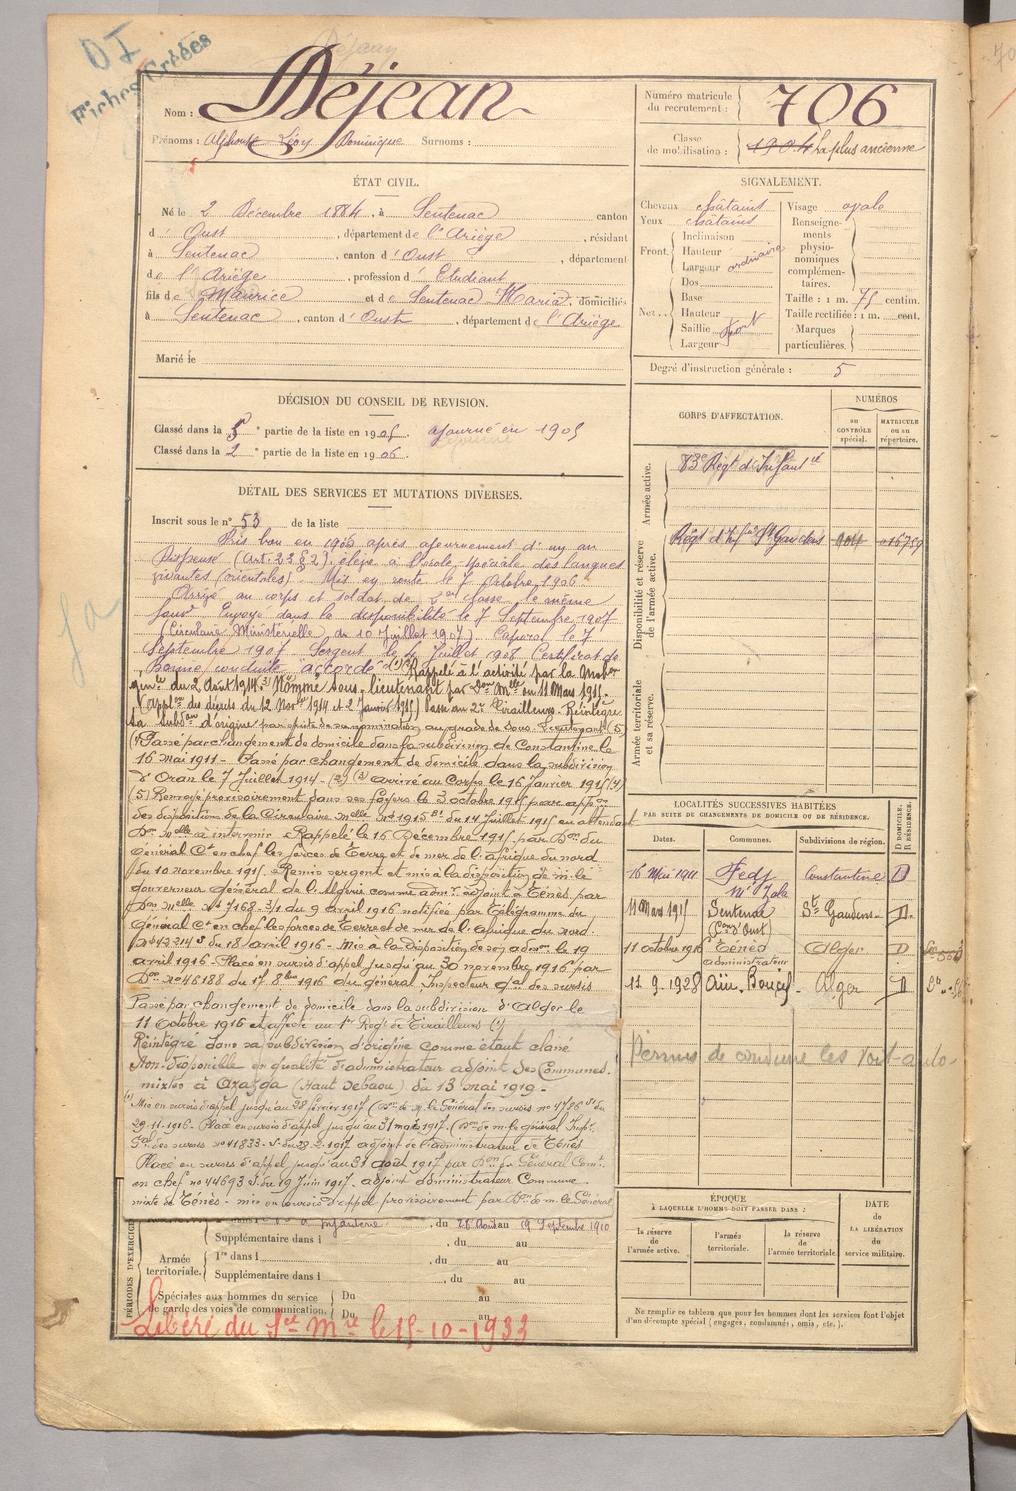 DI
Fiches Créées
Nom : Déjean
Prénoms : Alphonse Léon Dominique Surnoms :
Numéro matricule du recrutement : 706
Classe de mobilisation : 1904 La plus ancienne
ÉTAT CIVIL.
Né le 2 Décembre 1884, à Sentenac canton
d' Oust, département de l'Ariège, résidant
à Sentenac, canton d'Oust, département
de l'Ariège, profession d' Etudiant
fils de Maurice et de Sentenac Maria, domiciliés
à Sentenac, canton d'Oust, département de l'Ariège
Marié le
SIGNALEMENT.
Cheveux châtains
Yeux châtains
Front. Inclinaison
Hauteur
Largeur ordinaire
Nez. Dos
Base
Hauteur
Saillie fort
Largeur
Visage ovale
Renseignements physionomiques complémentaires.
Taille : 1 m. 75 centim.
Taille rectifiée : 1 m. cent.
Marques particulières.
Degré d'instruction générale : 5
DÉCISION DU CONSEIL DE REVISION.
Classé dans la 5e partie de la liste en 1905. ajourné en 1905
Classé dans la 2e partie de la liste en 1906.
DÉTAIL DES SERVICES ET MUTATIONS DIVERSES.
Inscrit sous le n° 53 de la liste
Pris bon en 1906 après ajournement d'un an
Dispensé (Art. 23 § 2), élève à l'école spéciale des langues
vivantes (orientales). Mis en route le 7 octobre 1906
Arrivé au corps et soldat de 2e classe le même
jour. Envoyé dans la disponibilité le 7 Septembre 1907
(Circulaire Ministérielle du 10 Juillet 1907) Caporal le 7
Septembre 1907. Sergent le 4 Juillet 908 Certificat de
Bonne conduite "accordé" (1) Rappelé à l'activité par la Mobon
génle du 2 Août 1914. Nommé sous-lieutenant par Don Mlle du 11 Mars 1915.
(Applon du décrets du 12 Novre 1914 et 2 Janvier 1915) Passé au 2e Tirailleurs. Réintègre
sa Subdon d'origine par suite de sa nomination au grade de sous-Lieutenant (5)
(1) Passé par changement de domicile dans la subdivision de Constantine le
16 mai 1911 - Passé par changement de domicile dans la subdivision
d'Oran le 7 Juillet 1914 - (2) (3) arrivé au Corps le 16 Janvier 1915 (4)
(5) Renvoyé provisoirement dans ses foyers le 3 octobre 1915 par appon
des dispositions de la Circulaire Melle du 14 Juillet 1915 en attendant
Don Melle à intervenir - Rappelé le 16 Décembre 1915 par Don du
Général Ct en chef les forces de Terre et de mer de l'afrique du nord
du 10 novembre 1915 - Remis sergent et mis à la disposition de m. le
gouverneur général de l'algérie comme admr adjoint à Ténès par
Don Melle n° 7168 3/1 du 9 avril 1916 notifiée par Télégramme du
Général Ct en chef les forces de Terre et de mer de l'afrique du Nord
n° 42214 S du 18 avril 1916 - Mis à la disposition de son admon le 19
avril 1916 - Placé en sursis d'appel jusqu'au 30 novembre 1916 par
Don n° 46188 du 17 8bre 1916 du général Inspecteur gal des sursis
Passé par changement de domicile dans la subdivision d'Alger le
11 octobre 1916 et affecté au 1er Regt de Tirailleurs (1)
Réintégré dans sa subdivision d'origine comme étant classé
non-disponible en qualité d'administrateur adjoint des Communes
mixtes à Azazga (Haut Sebaou) du 13 mai 1919 -
(1) Mis en sursis d'appel jusqu'au 28 février 1917 (Don de M. le Général des sursis n° 4786 S1 du
29-11-1916 - Placé en sursis d'appel jusqu'au 31 mai 1917 (Don de m. le général Inspr
Gal des sursis n° 41833 S. du 28.2.1917 adjoint de l'administrateur de Ténès
Placé en sursis d'appel jusqu'au 31 août 1917 par Don du Général Comt
en chef n° 44693 S. du 19 Juin 1917 - adjoint administrateur Commune
mixte de Ténès - mis en sursis d'appel provisoirement par Don de m. le Général
CORPS D'AFFECTATION.
NUMÉROS
AU CONTRÔLE spécial.
MATRICULE OU AU répertoire.
Armée active.
83e Régt d'Infanterie
Disponibilité et réserve de l'armée active.
Régt d'Infie St Gaudens
Armée territoriale et sa réserve.
LOCALITÉS SUCCESSIVES HABITÉES
PAR SUITE DE CHANGEMENTS DE DOMICILE OU DE RÉSIDENCE.
D DOMICILE. R RÉSIDENCE.
Dates. Communes. Subdivisions de région.
16 Mai 1911 Fedj M'Zala Constantine D
11 Mars 1915 Sentenac (Con d'Oust) St Gaudens D
11 octobre 1916 Ténès administrateur Alger D
11.9.1928 Aïn Boucif Alger D
Permis de conduire les voit-auto.
ÉPOQUE
À LAQUELLE L'HOMME DOIT PASSER DANS :
la réserve de l'armée active.
l'armée territoriale.
la réserve de l'armée territoriale.
DATE de LA LIBÉRATION du service militaire.
Ne remplir ce tableau que pour les hommes dont les services font l'objet
d'un décompte spécial (engagés, condamnés, omis, etc.).
PÉRIODES D'EXERCICE
Infanterie, du 28 Août au 19 Septembre 1910
Supplémentaire dans l , du au
Armée territoriale.
1re dans l , du au
Supplémentaire dans l , du au
Spéciales aux hommes du service
de garde des voies de communication.
Du au
Du au
Libéré du Sce Mre le 15-10-1933